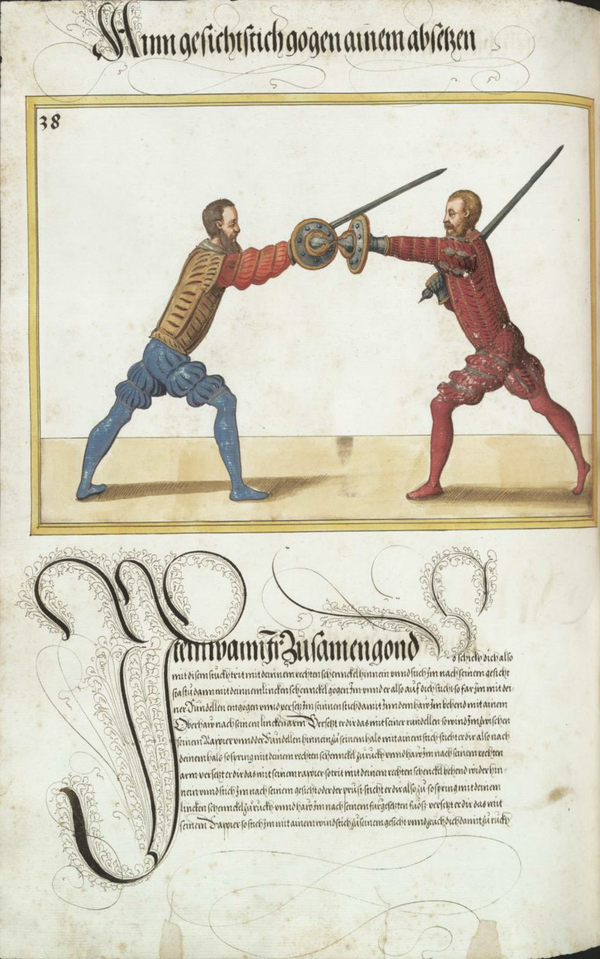 Ainn gesichtstich gögen ainem absetzen
38
Item wann Ir Zusamen gond so schick dich also
mit disem stuckh trit mit deinnem rechten schennckl hinnein vnnd stich Im nach seinem gesicht
stastu dann mit deinnem lincken schennckl gögen Im vnnd er also auf dich sticht so far Im mit dei-
ner Rundellen entgögen vnnd versetz Im seinnen stich damit Im dem haw Im behend mit ainem
Oberhaw nach seinem lincken arm Versetzt er dir das mit seiner rundellen so wind Im zwischen
seinem Rappier vnnd der Rundellen hinnein zu seinem hals mit ainem stich sticht er dir also nach
deinem hals so spring mit deinem rechten schennckl zu ruckh vnnd haw Im nach seinem rechten
arm versetzt er dir das mit seinem rapier so trit mit deinem rechten schenckl behend wider hin-
nein vnnd stich Im nach seinem gesicht oder der prust sticht er dir also zu so spring mit deinem
lincken schennckl zu ruckh vnnd haw Im nach seinem fürgesetzten fuoss versetzt er dir das mit
seinem Rappier so stich Im mit ainem windstich zu seinem gesicht vnnd zeuch dich damit zu ruckh